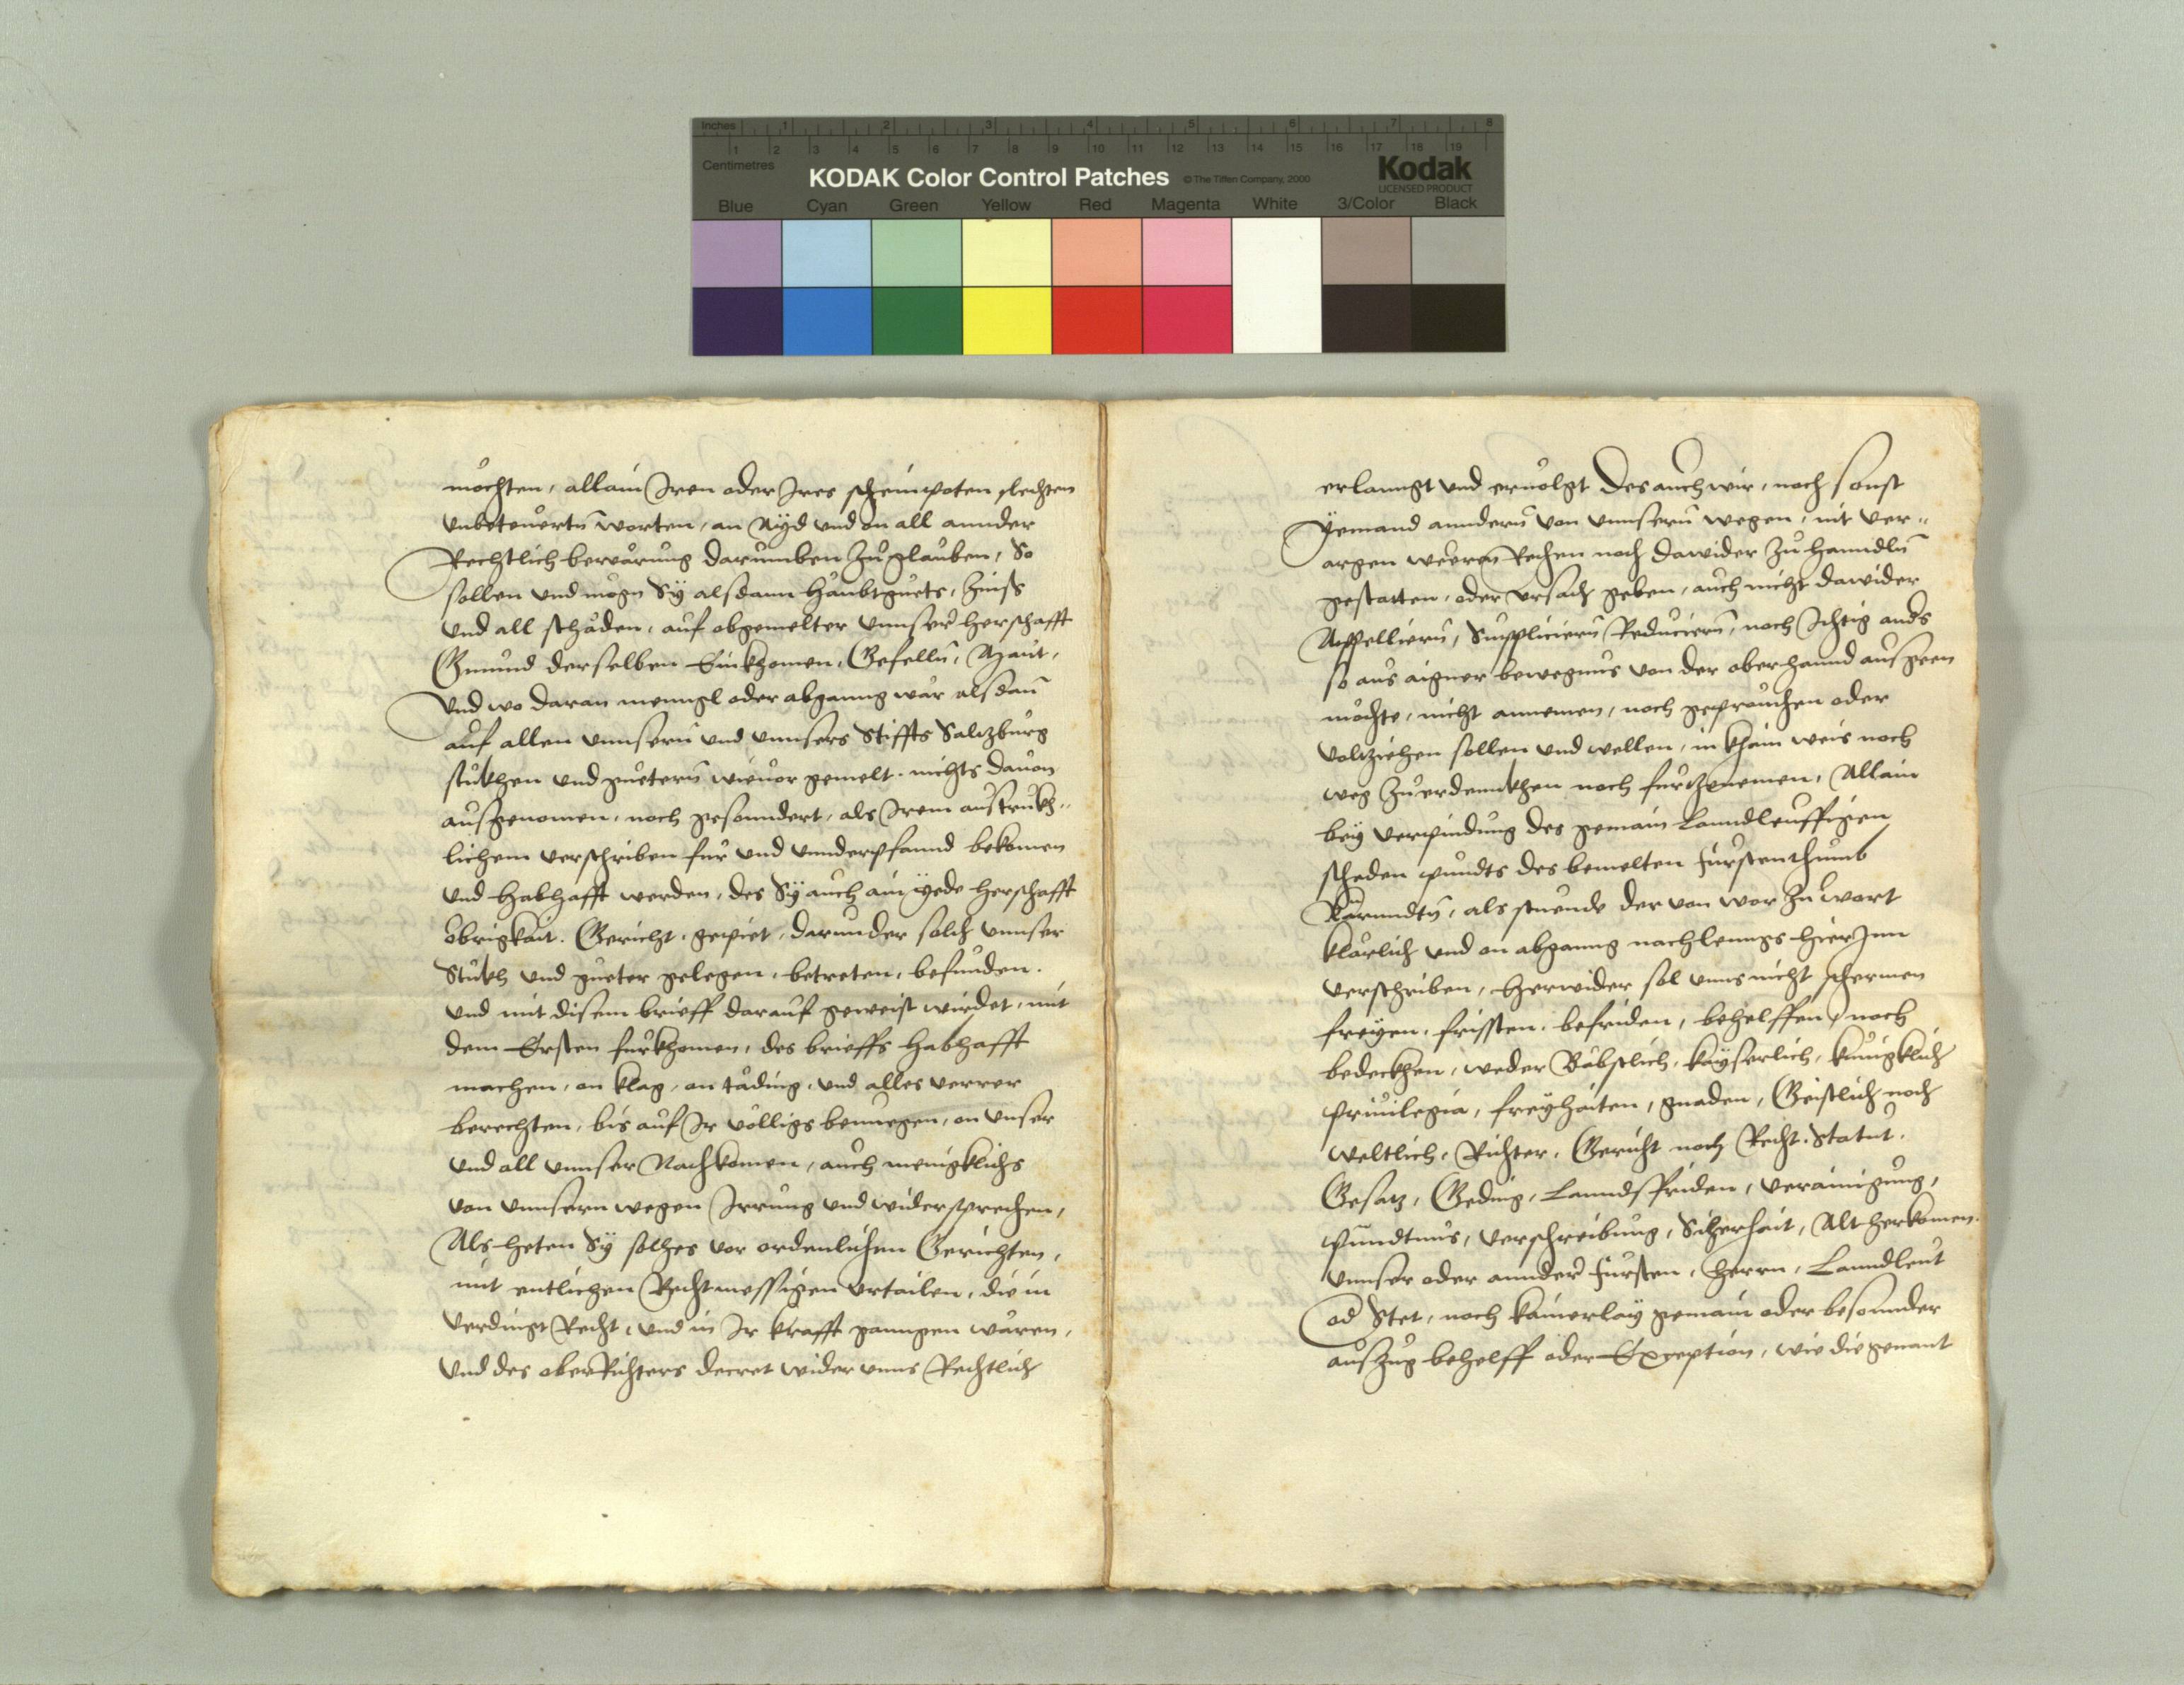 Inches 1 2 3 4 5 6 7 8
1 2 3 4 5 6 7 8 9 10 11 12 13 14 15 16 17 18 19
Centimetres
KODAK Color Control Patches © The Tiffen Company, 2000 Kodak
LICENSED PRODUCT
Blue Cyan Green Yellow Red Magenta White 3/Color Black
möchten, allain Iren oder Ires scheinpoten slechten
vnbeteuertn̄ worten, an Ayd vnd on all annder
Rechtlich bewärung darumben zuglauben, So
sollen vnd mögn Sÿ alsdann haubtguets, Zinss
vnd all schäden, auf obgemelter vnnser herschafft
Gmund derselben Einkhomen, Gefelln̄, Maut,
vnd wo daran menngl oder abganng wär alsdan̄
auf allen vnnsern̄ vnd vnnsers Stiffts Saltzburg
stukhen vnd guetern̄ wieuor gemelt. nichts dauon
ausgenomen, noch gesonndert, als Irem austrukh-
lichem verschriben für vnd vnnderpfannd bekomen
vnd habhafft werden, des Sÿ auch ain ÿede herschafft
öbrigkait. Gericht, gepiet, darunder solch vnnser
Stukh vnd gueter gelegen, betreten, befunden.
vnd mit disem brieff darauf geweist wirdet, mit
dem Ersten fürkhomen, des brieffs habhafft
machen, on klag, on täding, vnd alles verrer
berechten, bis auf Ir völligs benuegen, on vnser
vnd all vnnser Nachkomen, auch menigklichs
von vnnsern wegen Irrung vnd widersprechen,
Als heten Sÿ solhes vor ordenlichen Gerichten,
mit entlichen Rechtmessigen vrtailen, die in
verdingt Recht, vnd in Ir krafft ganngen wären,
vnd des obern Richters decret wider vnns Rechtlich
erlanngt vnd eruolgt Des auch wir, noch sonst
ÿemand anndern̄ von vnnsern̄ wegen, nit ver-
argen weeren Rechen noch dawider zu hanndln̄
gestatten, oder vrsach geben, auch nicht dawider
Appelliern̄, Suppliciern̄ Reduciern̄, noch Ichtig ands
so aus aigner bewegnus von der oberhannd ausgeen
möchte, nicht annemen, noch geprauchen oder
volziehen sollen vnd wellen, in khain weis noch
weg zuerdennkhen noch fürtzenemen, Allain
bey verpindung des gemain Lanndleuffigen
scheden pundts des bemelten fürstenthumb
Kärnndtn̄, als stuende der von wort zu wort
klärlich vnd on abganng nachlenngs hierInn
verschriben, herwider sol vnns nicht schermen
freÿen, fristen, befriden, behelffen, noch
bedeckhen, weder Bäbstlich, kaÿserlich, kunigklich
priuilegia, freÿhaiten, gnaden, Geistlich noch
weltlich, Richter, Gericht noch Recht. Statut.
Gesatz, Geding, Lanndsfriden, verainigung,
pundtnus, verschreibung, Sicherhait, Alt herkomen.
vnnser oder annder fürsten, herrn, Lanndleut
od Stet, noch kainerlaÿ gemain oder besonnder
auszug behelff oder Exception, wie die genant